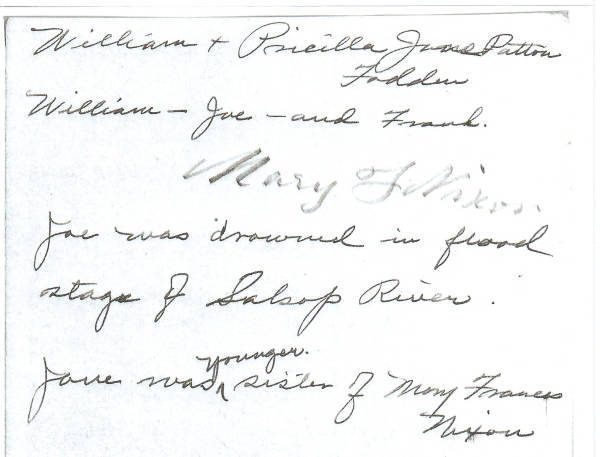 William + Pricilla Jane Patton
Fadden
William - Joe - and Frank.
Mary F Nixon
Joe was drowned in flood
stage of Salsop River.
Jane was younger. sister of Mary Frances
Nixon